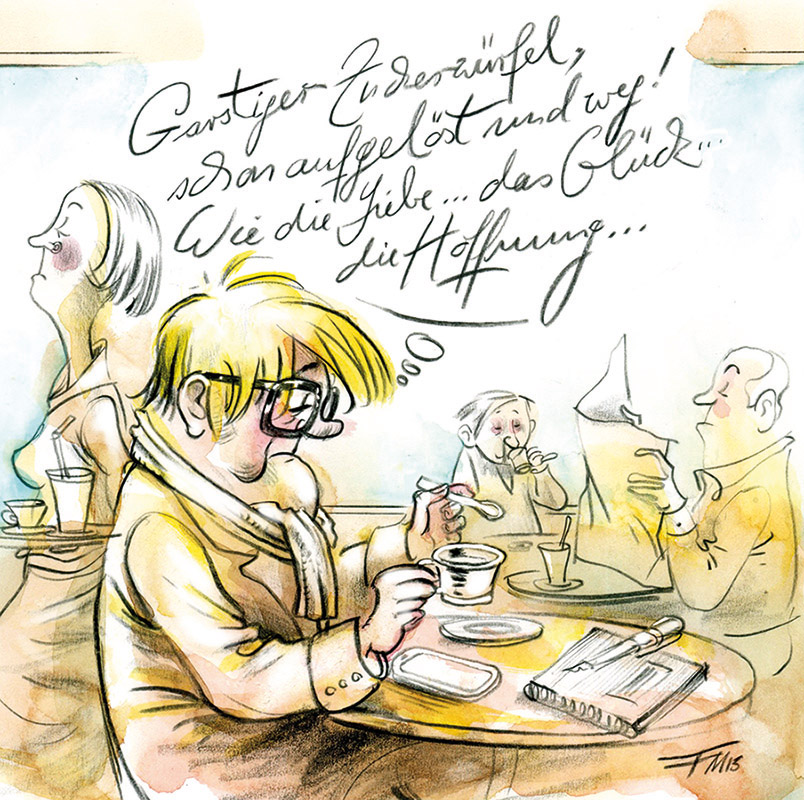 Garstiger Zuckerwürfel,
schon aufgelöst und weg!
Wie die Liebe... das Glück...
die Hoffnung...
FM15